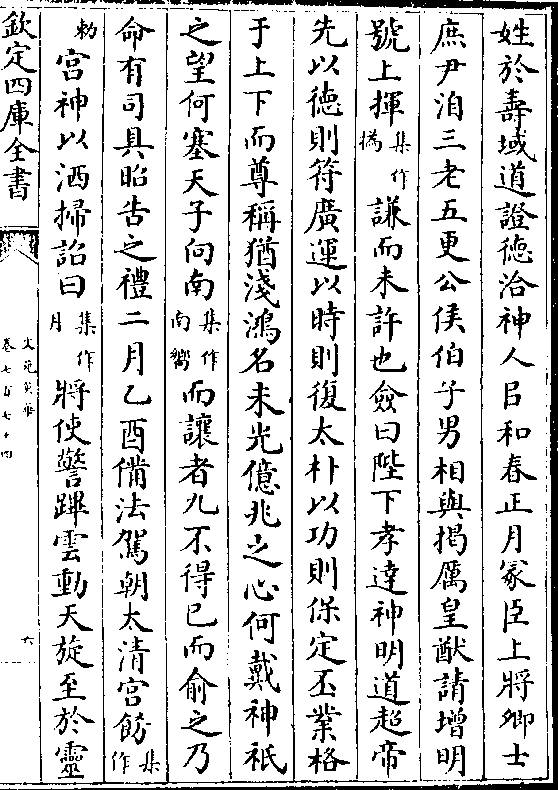 姓於壽域道證德洽神人吕和春正月冢臣上將卿士
庶尹洎三老五更公侯伯子男相與揭厲皇猷請增明
號上揮集作撝謙而未許也僉曰陛下孝達神明道超帝
先以徳則符廣運以時則復太朴以功則保定丕業格
于上下而尊稱猶淺鴻名未光億兆之心何戴神祇
之望何塞天子向南集作南嚮而讓者九不得已而俞之乃
命有司具昭告之禮二月乙酉備法駕朝太清宫飭集作
勅宫神以洒掃詔曰集作月將使警蹕雲動天旋至於靈
欽定四庫全書
文苑英華
卷七百七十四
六